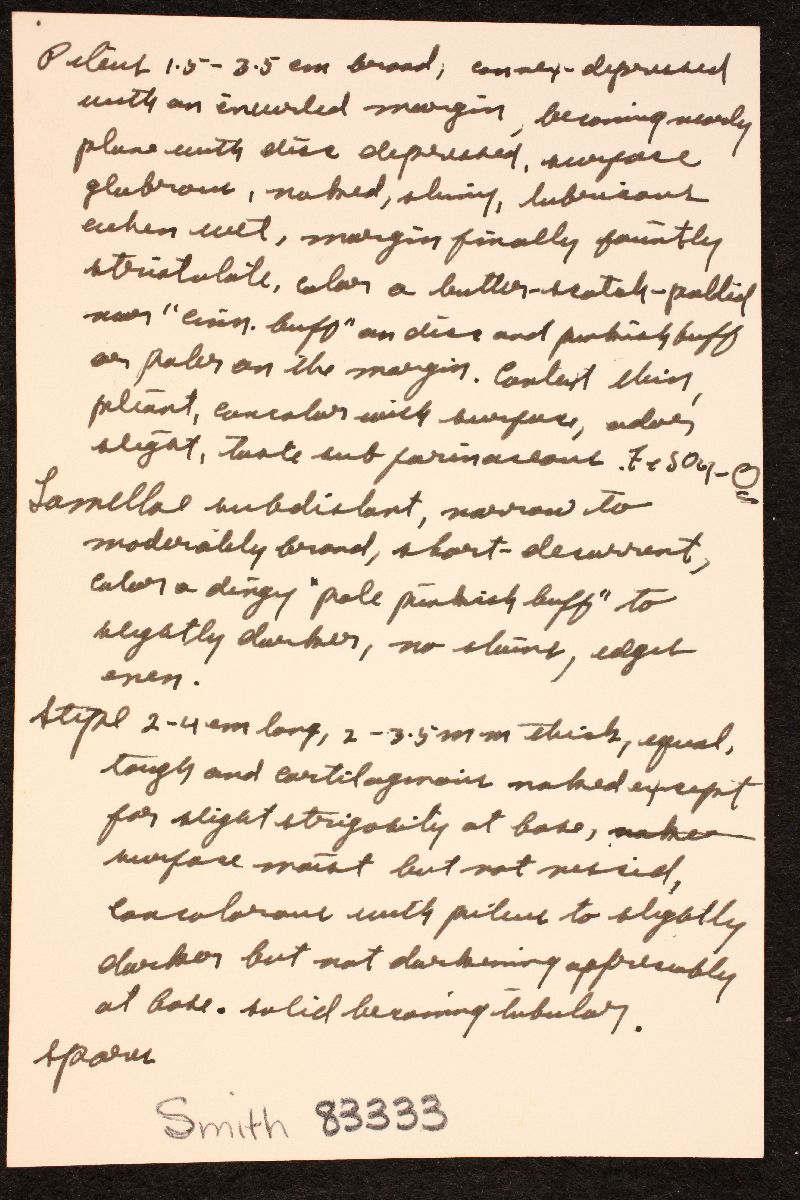 Pileus 1.5-3.5 cm broad, convex-depressed
with an incurled margin, becoming nearly
plane with disc depressed, surface
glabrous, naked, shiny, lubricous
when wet, margin finally faintly
striatulate, color a butter-scotch-pallid
near "cinn. buff" on disc and pinkish buff
or paler on the margin. Context thin,
pliant, concolor with surface, odor
slight, taste sub farinaceous. FeSO4-⊖
Lamellae subdistant, narrow to
moderately broad, short-decurrent,
color a dingy "pale pinkish buff" to
slightly darker, no stains, edges
even.
Stipe 2-4 cm long, 2-3.5 mm thick, equal,
tough and cartilaginous naked except
for slight strigosity at base, nake
surface moist but not viscid,
concolorous with pileus to slightly
darker but not darkening appreciably
at base. solid becoming tubular.
Spores
Smith 83333